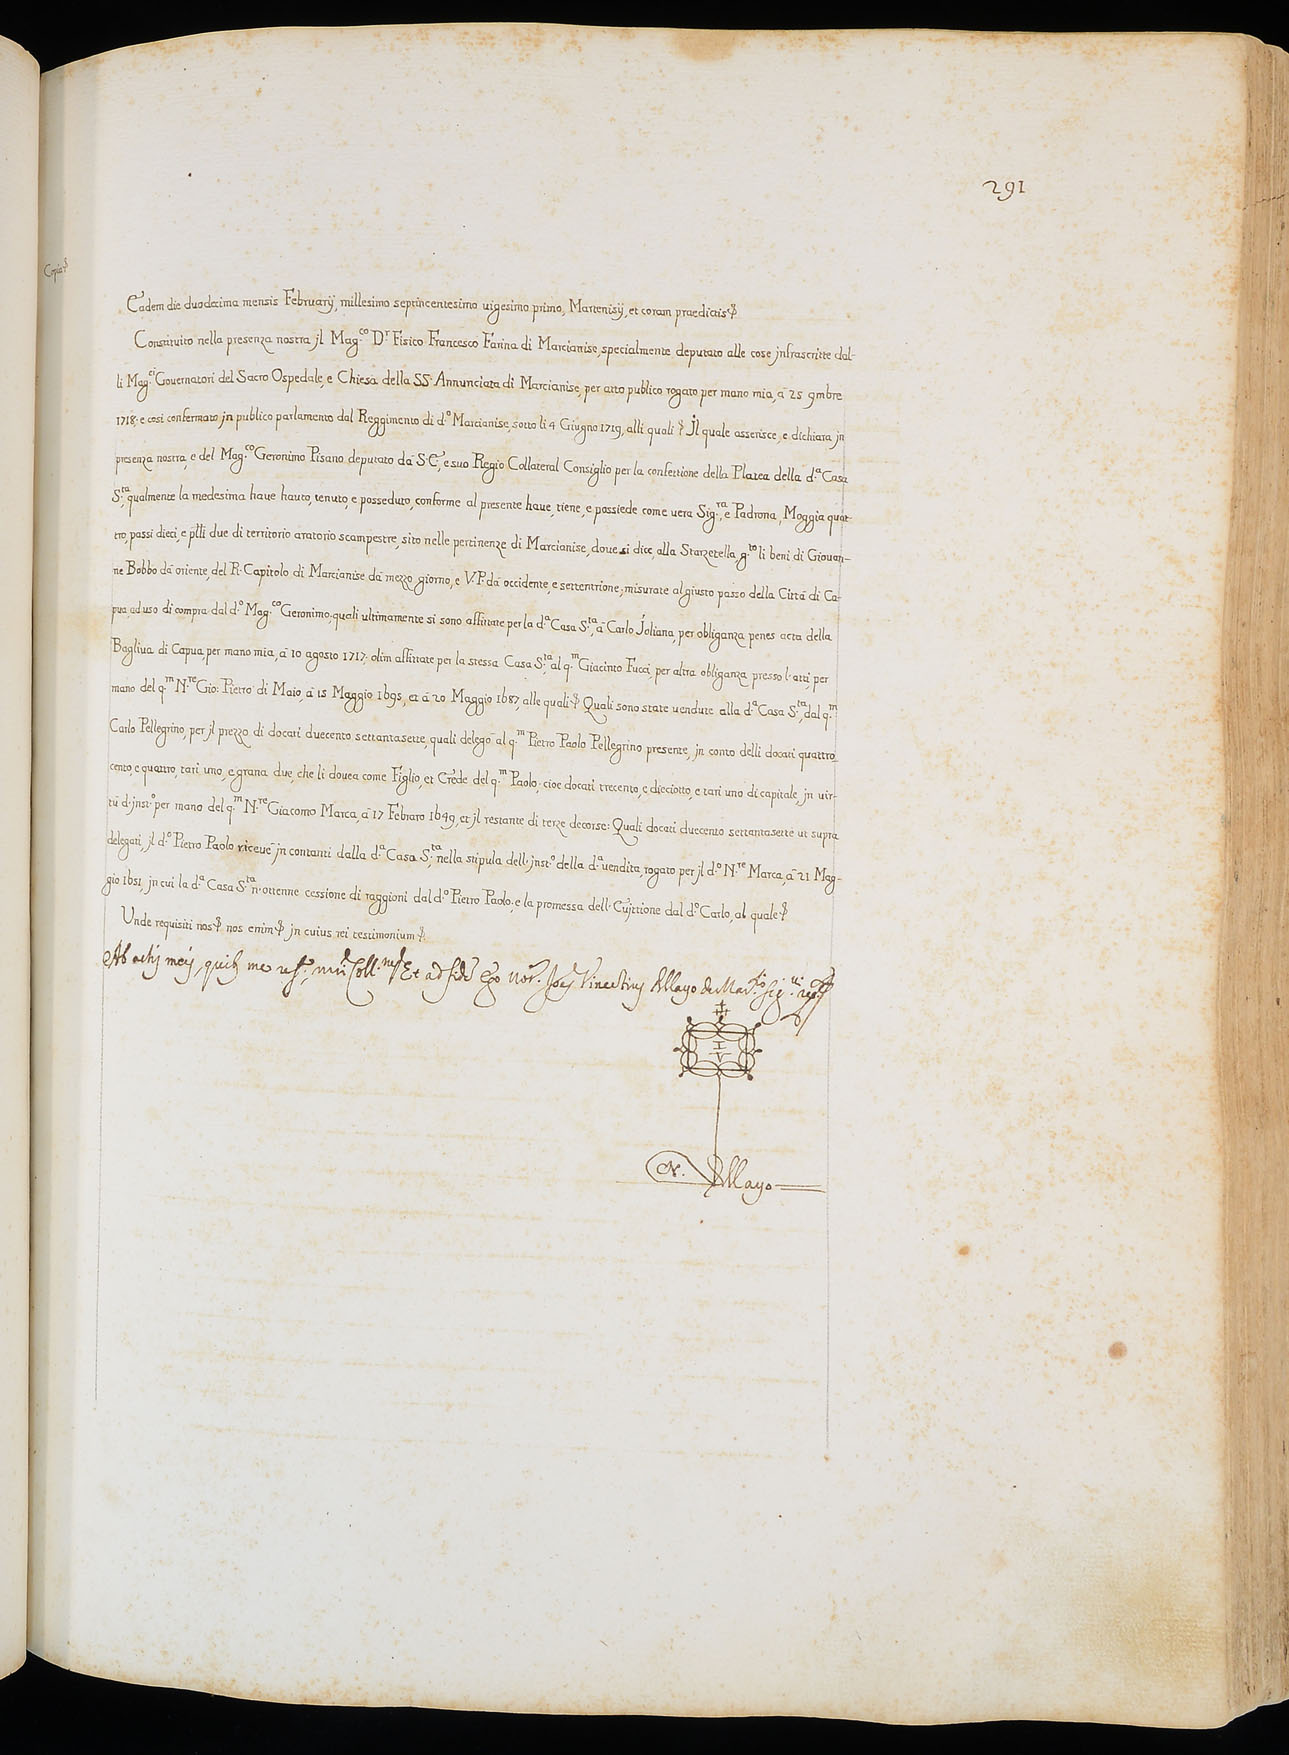 291
Copia
Eadem die duodecima mensis Februarij, millesimo septincentesimo uigesimo primo, Martenisij, et coram praedictis
Constituito nella presenza nostra jl Mag.co Dr. Fisico Francesco Farina di Marcianise, specialmente deputato alle cose jnfrascritte dal-
li Mag.ci Gouernatori del Sacro Ospedale, e Chiesa della SS. Annunciata di Marcianise, per atto publico rogato per mano mia, à 25 9mbre
1718: e cosi confermato jn publico parlamento dal Reggimento di d.o Marcianise, sotto li 4 Giugno 1719, alli quali Jl quale asserisce, e dichiara jn
presenza nostra, e del Mag.co Geronimo Pisano deputato dà S.E., e suo Regio Collateral Consiglio per la confettione della Platea della d.a Casa
S.ta, qualmente la medesima haue hauto, tenuto, e posseduto, conforme al presente haue, tiene, e possiede come uera Sig.ra, e Padrona, Moggia quat-
tro, passi dieci, e p̄lli due di territorio aratorio scampestre, sito nelle pertinenze di Marcianise, doue si dice, alla Starzetella, g.to li beni di Giouan-
ne Bobbo dà oriente, del R. Capitolo di Marcianise dà mezzo giorno, e V.P. dà occidente, e settentrione; misurate al giusto passo della Città di Ca-
pua, ad uso di compra dal d.o Mag.co Geronimo: quali ultimamente si sono affittate per la d.a Casa S.ta, à Carlo Joliana, per obliganza penes acta della
Bagliua di Capua, per mano mia, à 10 agosto 1717: olim affittate per la stessa Casa S.ta al q.m Giacinto Fucci, per altra obliganza presso l'atti, per
mano del q.m N.re Gio: Pietro di Maio, à 15 Maggio 1695, et à 20 Maggio 1687, alle quali Quali sono state uendute alla d.a Casa S.ta, dal q.m
Carlo Pellegrino, per jl prezzo di docati duecento settantasette, quali delegò al q.m Pietro Paolo Pellegrino presente, jn conto delli docati quattro
cento, e quattro, tarì uno, e grana due, che li douea come Figlio, et Erede del q.m Paolo; cioe docati trecento, e dieciotto, e tarì uno di capitale, jn uir-
tù d'jnst.o per mano del q.m N.re Giacomo Marca, à 17 Febraro 1649, et jl restante di terze decorse: Quali docati duecento settantasette ut supra
delegati, jl d.o Pietro Paolo riceuè jn contanti dalla d.a Casa S.ta, nella stipula dell'jnst.o della d.a uendita, rogato per jl d.o N.re Marca, à 21 Mag-
gio 1651, jn cui la d.a Casa S.ta n'ottenne cessione di raggioni dal d.o Pietro Paolo; e la promessa dell'Euittione dal d.o Carlo, al quale
Unde requisiti nos nos enim jn cuius rei testimonium
Ab actis meis, quib. me Et ad fidem Ego Not.s Allayo de
I
V
N. Allayo